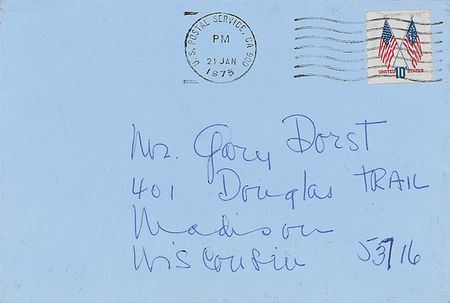 U.S. POSTAL SERVICE, CA 900
PM
21 JAN
1975
UNITED 10c STATES
Mr. Gary Dorst
401 Douglas TRAIL
Madison
Wisconsin 53716